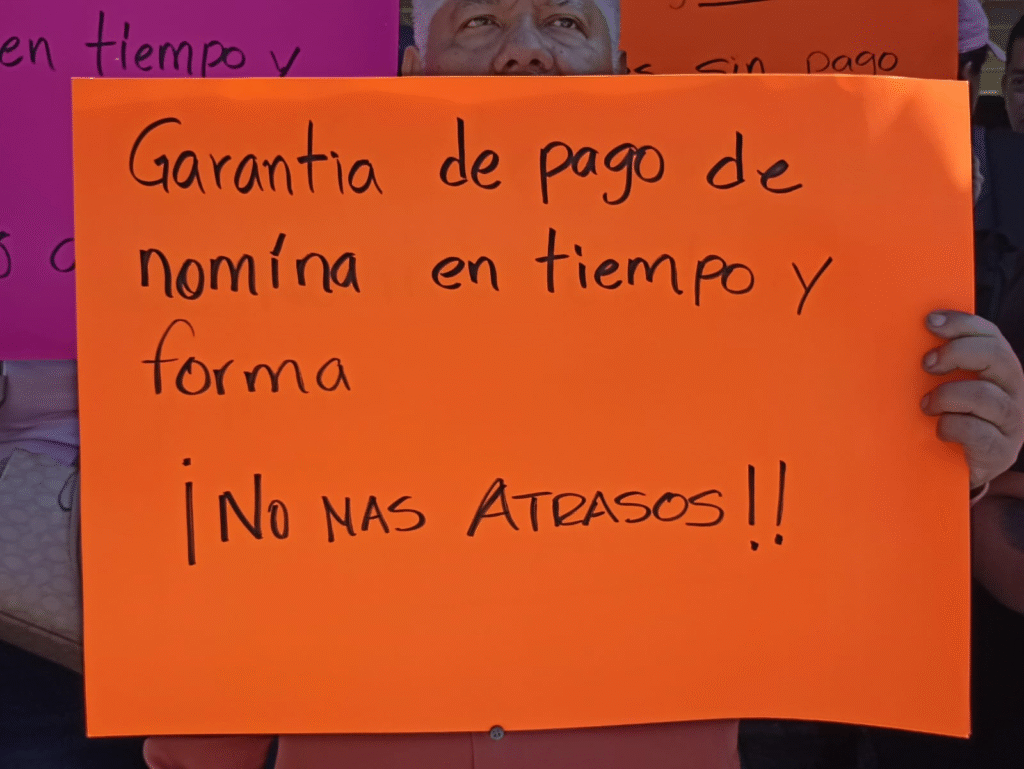 en tiempo y
sin pago
Garantia de pago de
nomína en tiempo y
forma
¡NO MAS ATRASOS!!